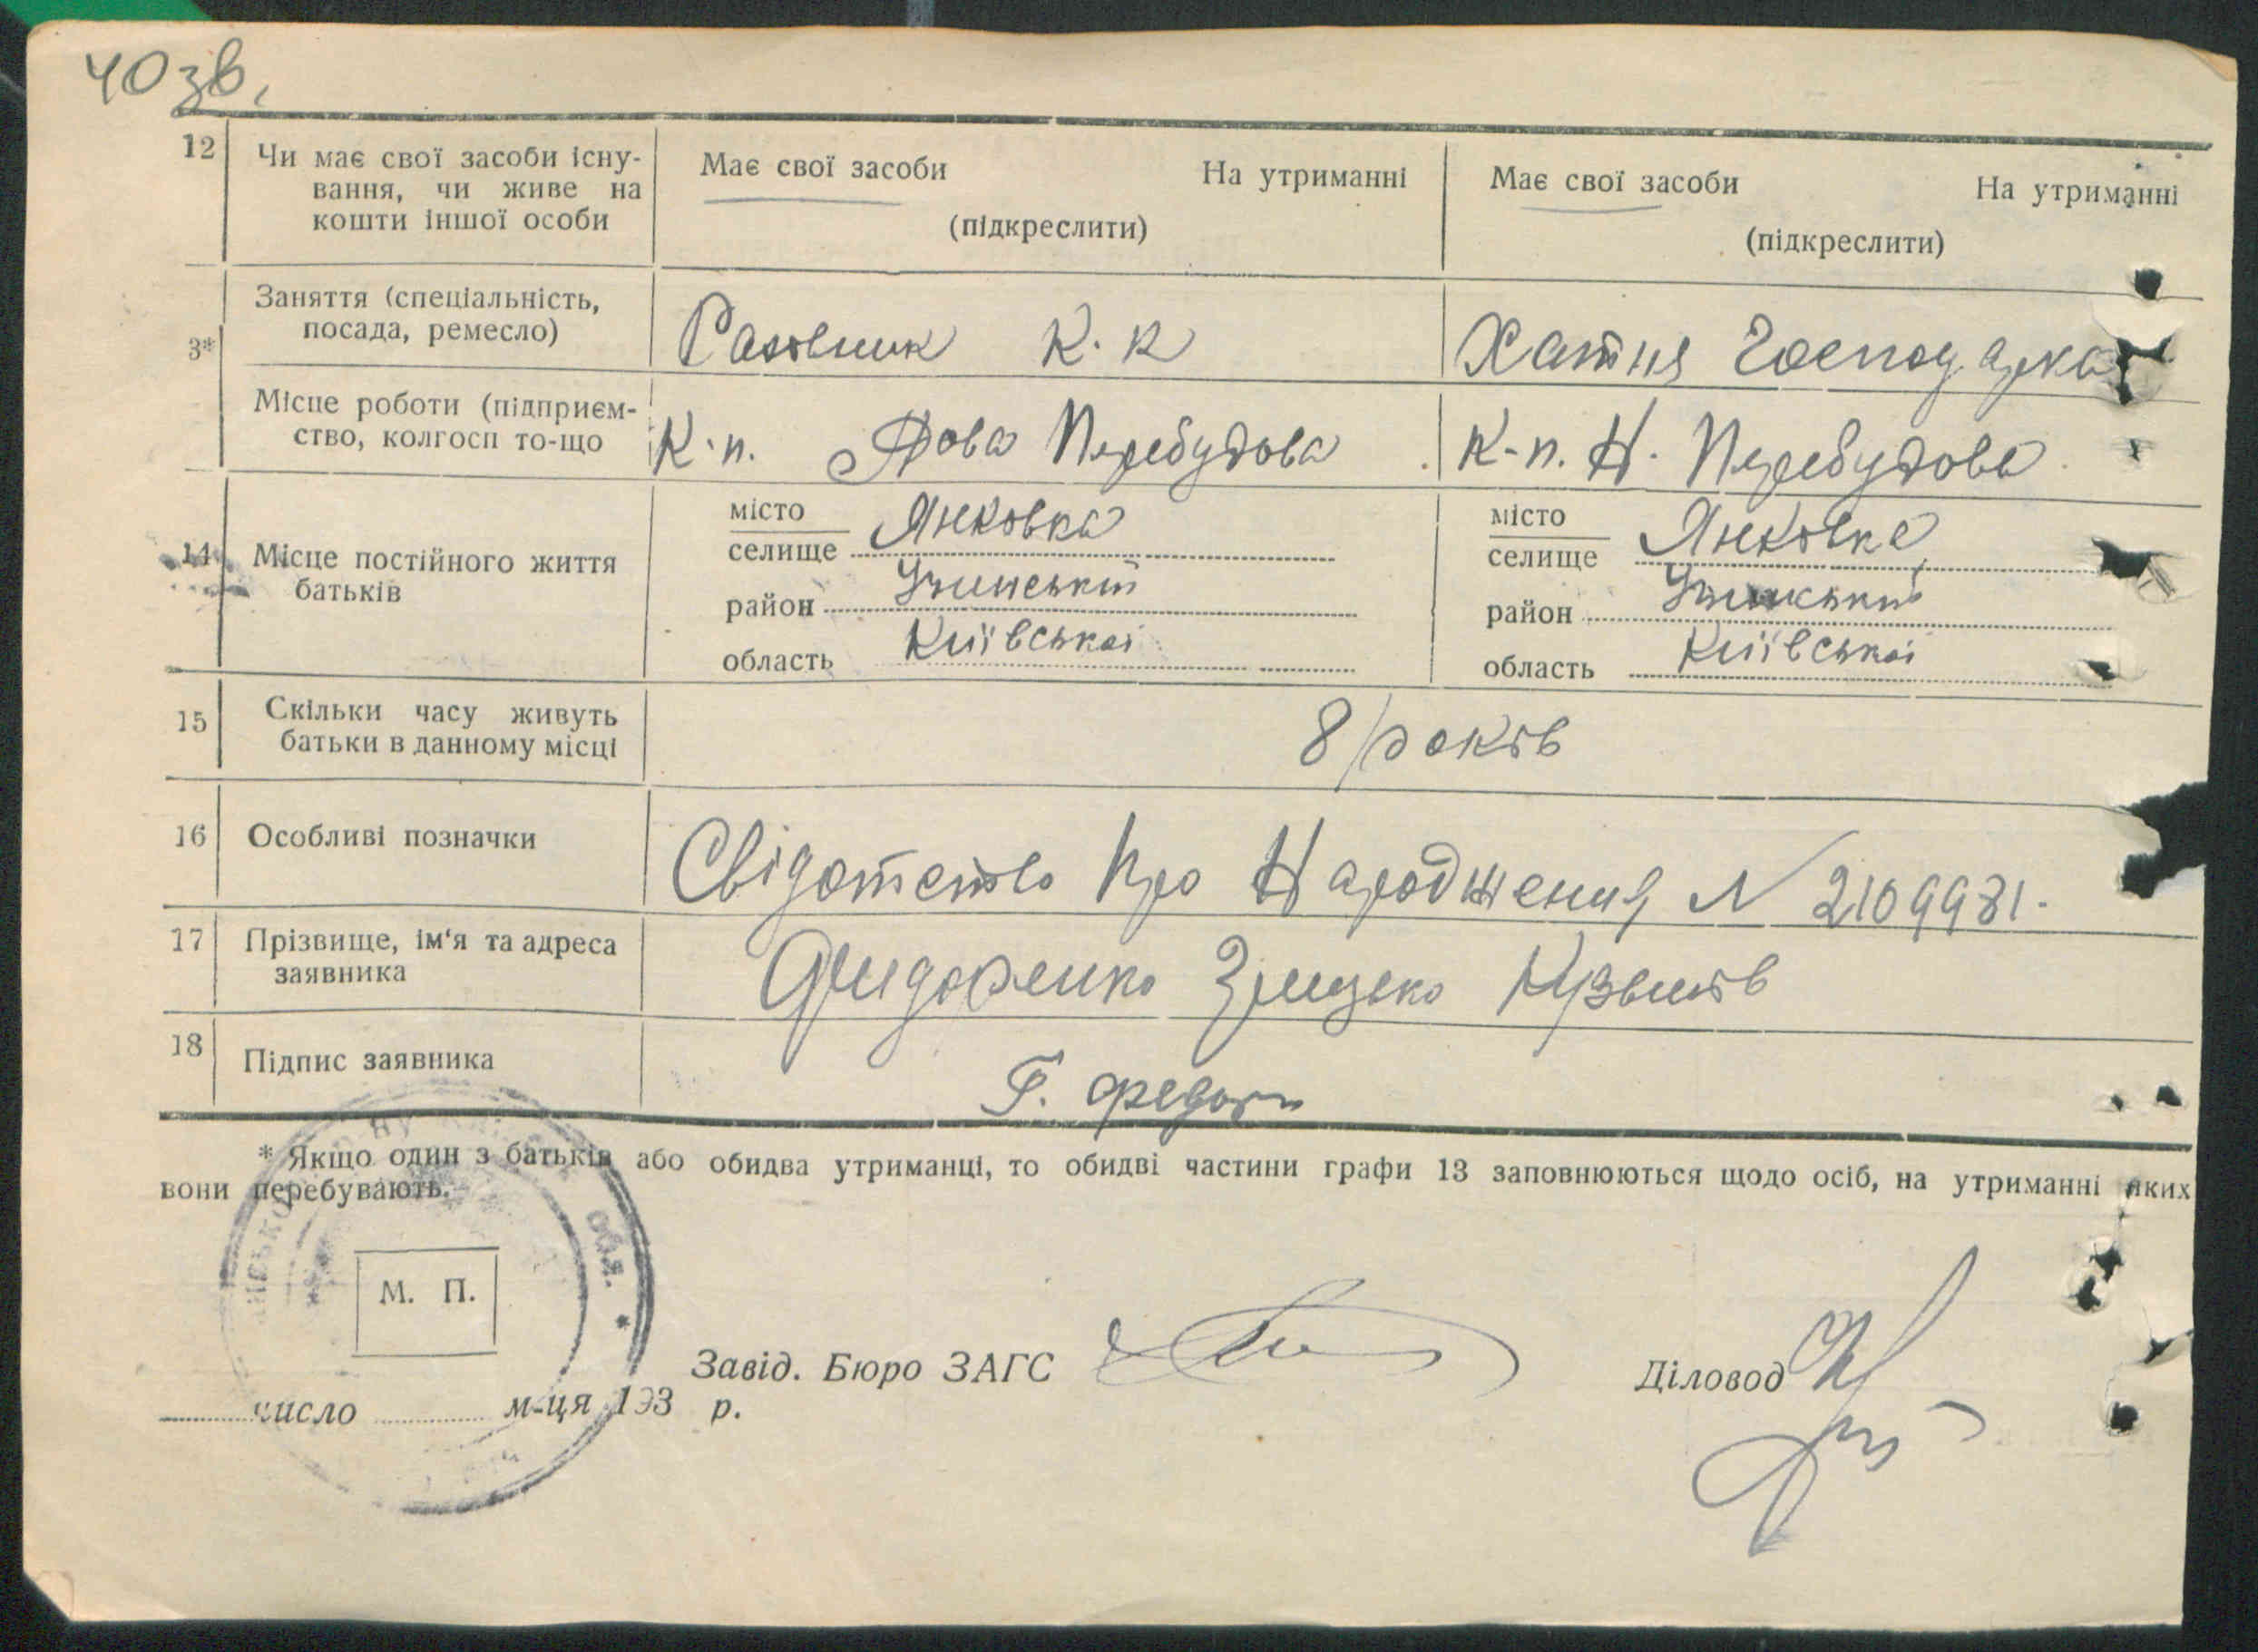 40 зв.
12 Чи має свої засоби існу-
вання, чи живе на
кошти іншої особи
Має свої засоби На утриманні
(підкреслити)
Має свої засоби На утриманні
(підкреслити)
3* Заняття (спеціальність,
посада, ремесло)
Раховник К. К
Хатня Господарка
Місце роботи (підприєм-
ство, колгосп то-що
К-п. Нова Перебудова
К-п. Н. Перебудова
14 Місце постійного життя
батьків
місто
селище Янковка
район Узинський
область Київської
місто
селище Янковка
район Узинський
область Київської
15 Скільки часу живуть
батьки в данному місці
8 років
16 Особливі позначки
Свідотство Про Народження N 2109981.
17 Прізвище, ім'я та адреса
заявника
Фидоренко Грицько Кузьмів
18 Підпис заявника
Г. Федор
* Якщо один з батьків або обидва утриманці, то обидві частини графи 13 заповнюються щодо осіб, на утриманні яких
вони перебувають.
обл. *
М. П.
Завід. Бюро ЗАГС
Діловод
число м-ця 193 р.